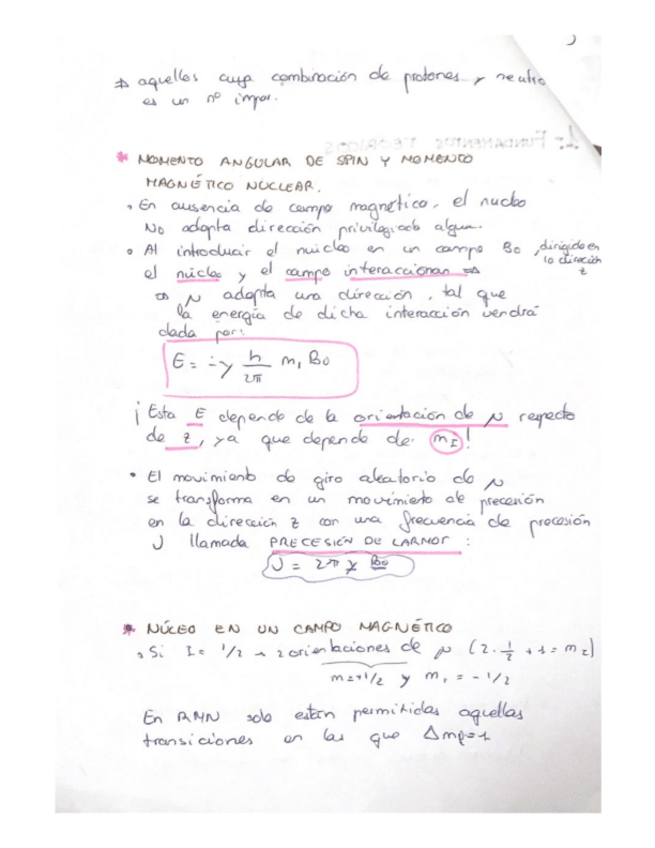 ⇒ aquellos cuya combinación de protones y neutro
es un nº impar.
1.- FUNDAMENTOS TEÓRICOS
* MOMENTO ANGULAR DE SPIN Y MOMENTO
MAGNÉTICO NUCLEAR.
• En ausencia de campo magnético, el nucleo
NO adopta dirección privilegiada alguna.
• Al introducir el núcleo en un campo B0, dirigido en
la dirección
z
el núcleo y el campo interaccionan ⇒
⇒ μ adopta una dirección, tal que
la energía de dicha interacción vendrá
dada por:
E = -γ h/2π mI B0
¡Esta E depende de la orientación de μ respecto
de z, ya que depende de mI!
• El movimiento de giro aleatorio de μ
se transforma en un movimiento de precesión
en la dirección z con una frecuencia de precesión
ν llamada PRECESIÓN DE LARMOR:
ν = 2π γ B0
* NÚCEO EN UN CAMPO MAGNÉTICO
• Si I = 1/2 → 2 orientaciones de μ (2·1/2 + 1 = mI)
m=+1/2 y mI = -1/2
En RMN solo están permitidas aquellas
transiciones en las que ΔmI=1